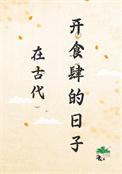 开食肆的日子
在古代